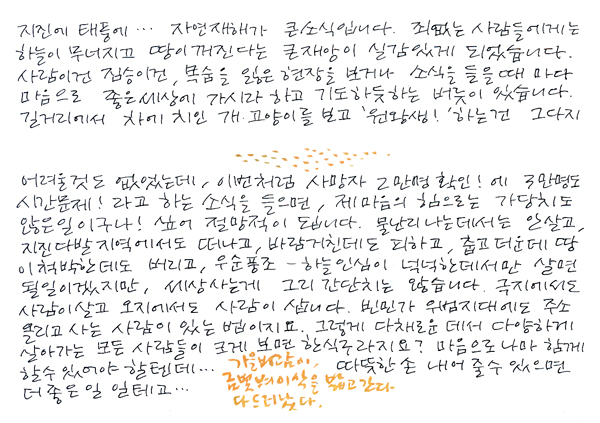 지진에 태풍에… 자연재해가 큰소식입니다. 죄없는 사람들에게는
하늘이 무너지고 땅이 꺼진다는 큰재앙이 실감있게 되었습니다.
사람이건 짐승이건, 목숨을 잃은 현장을 보거나 소식을 들을 때 마다
마음으로 좋은세상에 가시라 하고 기도하듯하는 버릇이 있습니다.
길거리에서 차에 치인 개·고양이를 보고 '원왕생!' 하는건 그다지
어려울것도 없었는데, 이번처럼 사망자 2만명 확인! 에 3만명도
시간문제! 라고 하는 소식을 들으면, 제 마음의 힘으로는 가당치도
않은일이구나! 싶어 절망적이 됩니다. 물난리나는데서는 안살고,
지진다발지역에서도 떠나고, 바람거친데도 피하고, 춥고 더운데 땅
이 척박한데도 버리고, 우순풍조-하늘인심이 넉넉한데서만 살면
될일이겠지만, 세상사는게 그리 간단치는 않습니다. 극지에서도
사람이 살고 오지에서도 사람이 삽니다. 빈민가 우범지대에도 주소
달리고 사는 사람이 있는 법이지요. 그렇게 다채로운 데서 다양하게
살아가는 모든 사람들이 크게 보면 한식구라지요? 마음으로나마 함께
할수 있어야 할텐데… 따뜻한 손 내어 줄수 있으면
더 좋은 일 일테고…
가을바람이,
금빛벼이삭을 밟고간다
다 드러났다.